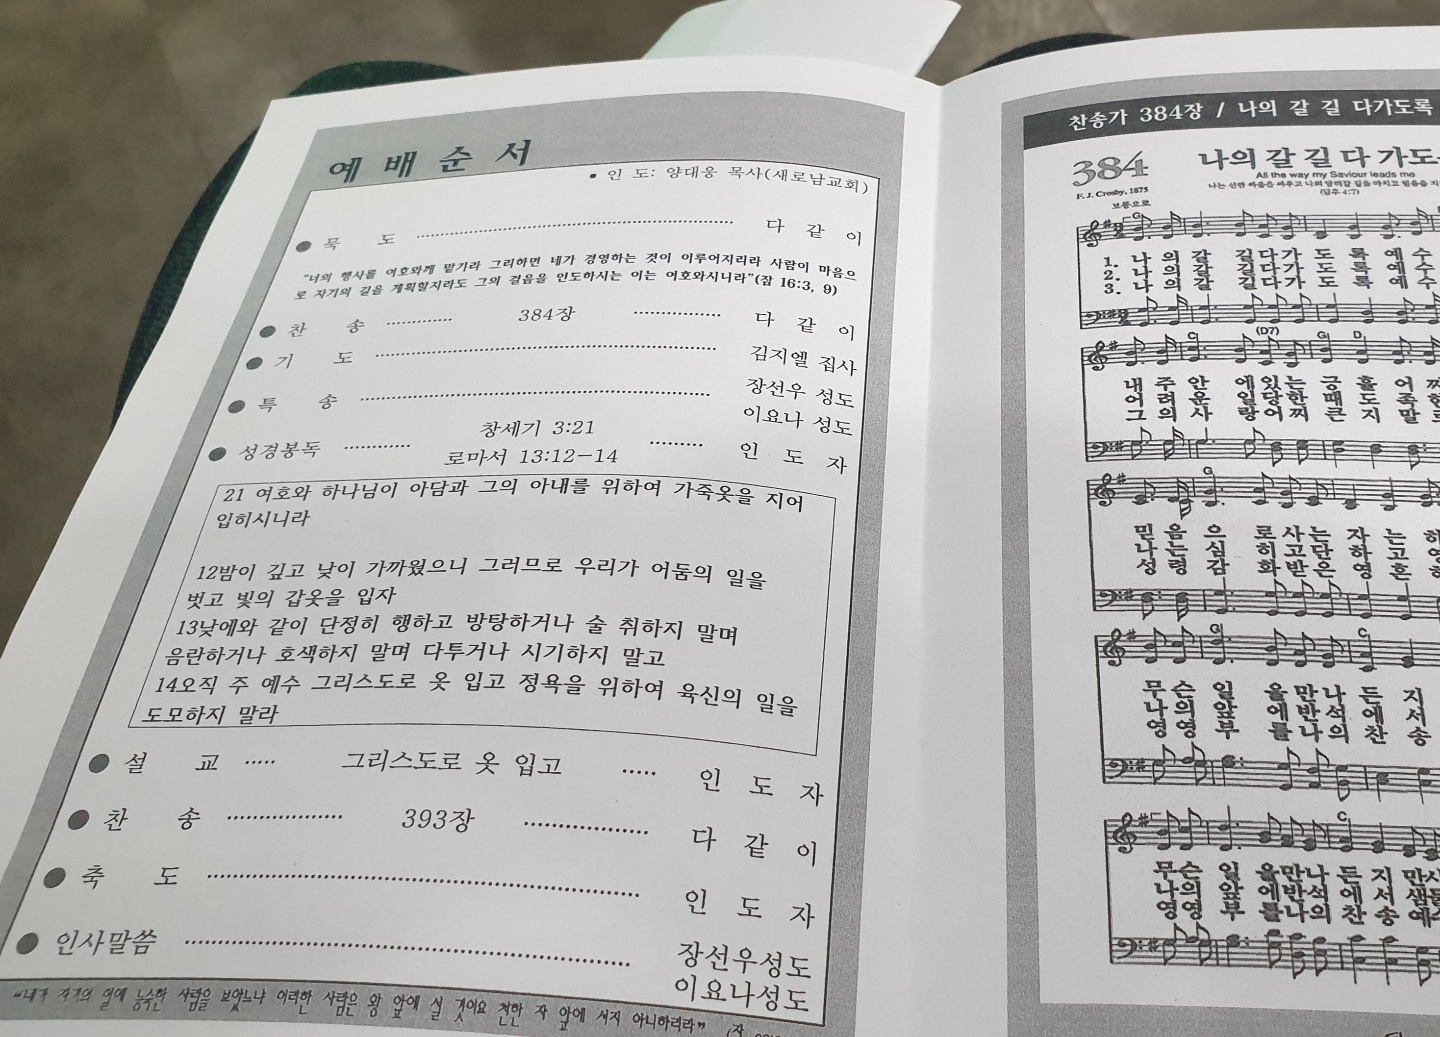 예 배 순 서
• 인 도: 양대웅 목사(새로남교회)
● 묵 도 다 같 이
"너의 행사를 여호와께 맡기라 그리하면 네가 경영하는 것이 이루어지리라 사람이 마음으
로 자기의 길을 계획할지라도 그의 걸음을 인도하시는 이는 여호와시니라"(잠 16:3, 9)
● 찬 송 384장 다 같 이
● 기 도 김지엘 집사
● 특 송 장선우 성도
이요나 성도
● 성경봉독 창세기 3:21 인 도 자
로마서 13:12-14
21 여호와 하나님이 아담과 그의 아내를 위하여 가죽옷을 지어
입히시니라
12밤이 깊고 낮이 가까웠으니 그러므로 우리가 어둠의 일을
벗고 빛의 갑옷을 입자
13낮에와 같이 단정히 행하고 방탕하거나 술 취하지 말며
음란하거나 호색하지 말며 다투거나 시기하지 말고
14오직 주 예수 그리스도로 옷 입고 정욕을 위하여 육신의 일을
도모하지 말라
● 설 교 그리스도로 옷 입고 인 도 자
● 찬 송 393장 다 같 이
● 축 도 인 도 자
● 인사말씀 장선우성도
이요나성도
"네가 자기의 일에 능숙한 사람을 보았느냐 이러한 사람은 왕 앞에 설 것이요 천한 자 앞에 서지 아니하리라"
찬송가 384장 / 나의 갈 길 다가도록
384 나의 갈 길 다 가도
All the way my Saviour leads me
F. J. Crosby, 1875
(딤후 4:7)
보통으로
G
1. 나 의 갈 길다가 도 록 예 수
2. 나 의 갈 길다가 도 록 예 수
3. 나 의 갈 길다가 도 록 예 수
C (D7) G D
내 주 안 에있는 긍 휼 어
어 려 운 일당한 때 도 족
그 의 사 랑어찌 큰 지 말
G
믿 음 으 로사는 자 는
나 는 심 히고단 하 고
성 령 감 화받은 영 혼
G C
무슨 일 을만나 든 지
나의 앞 에반석 에 서
영영 부 를나의 찬 송
C
무슨 일 을만나 든 지
나의 앞 에반석 에 서
영영 부 를나의 찬 송